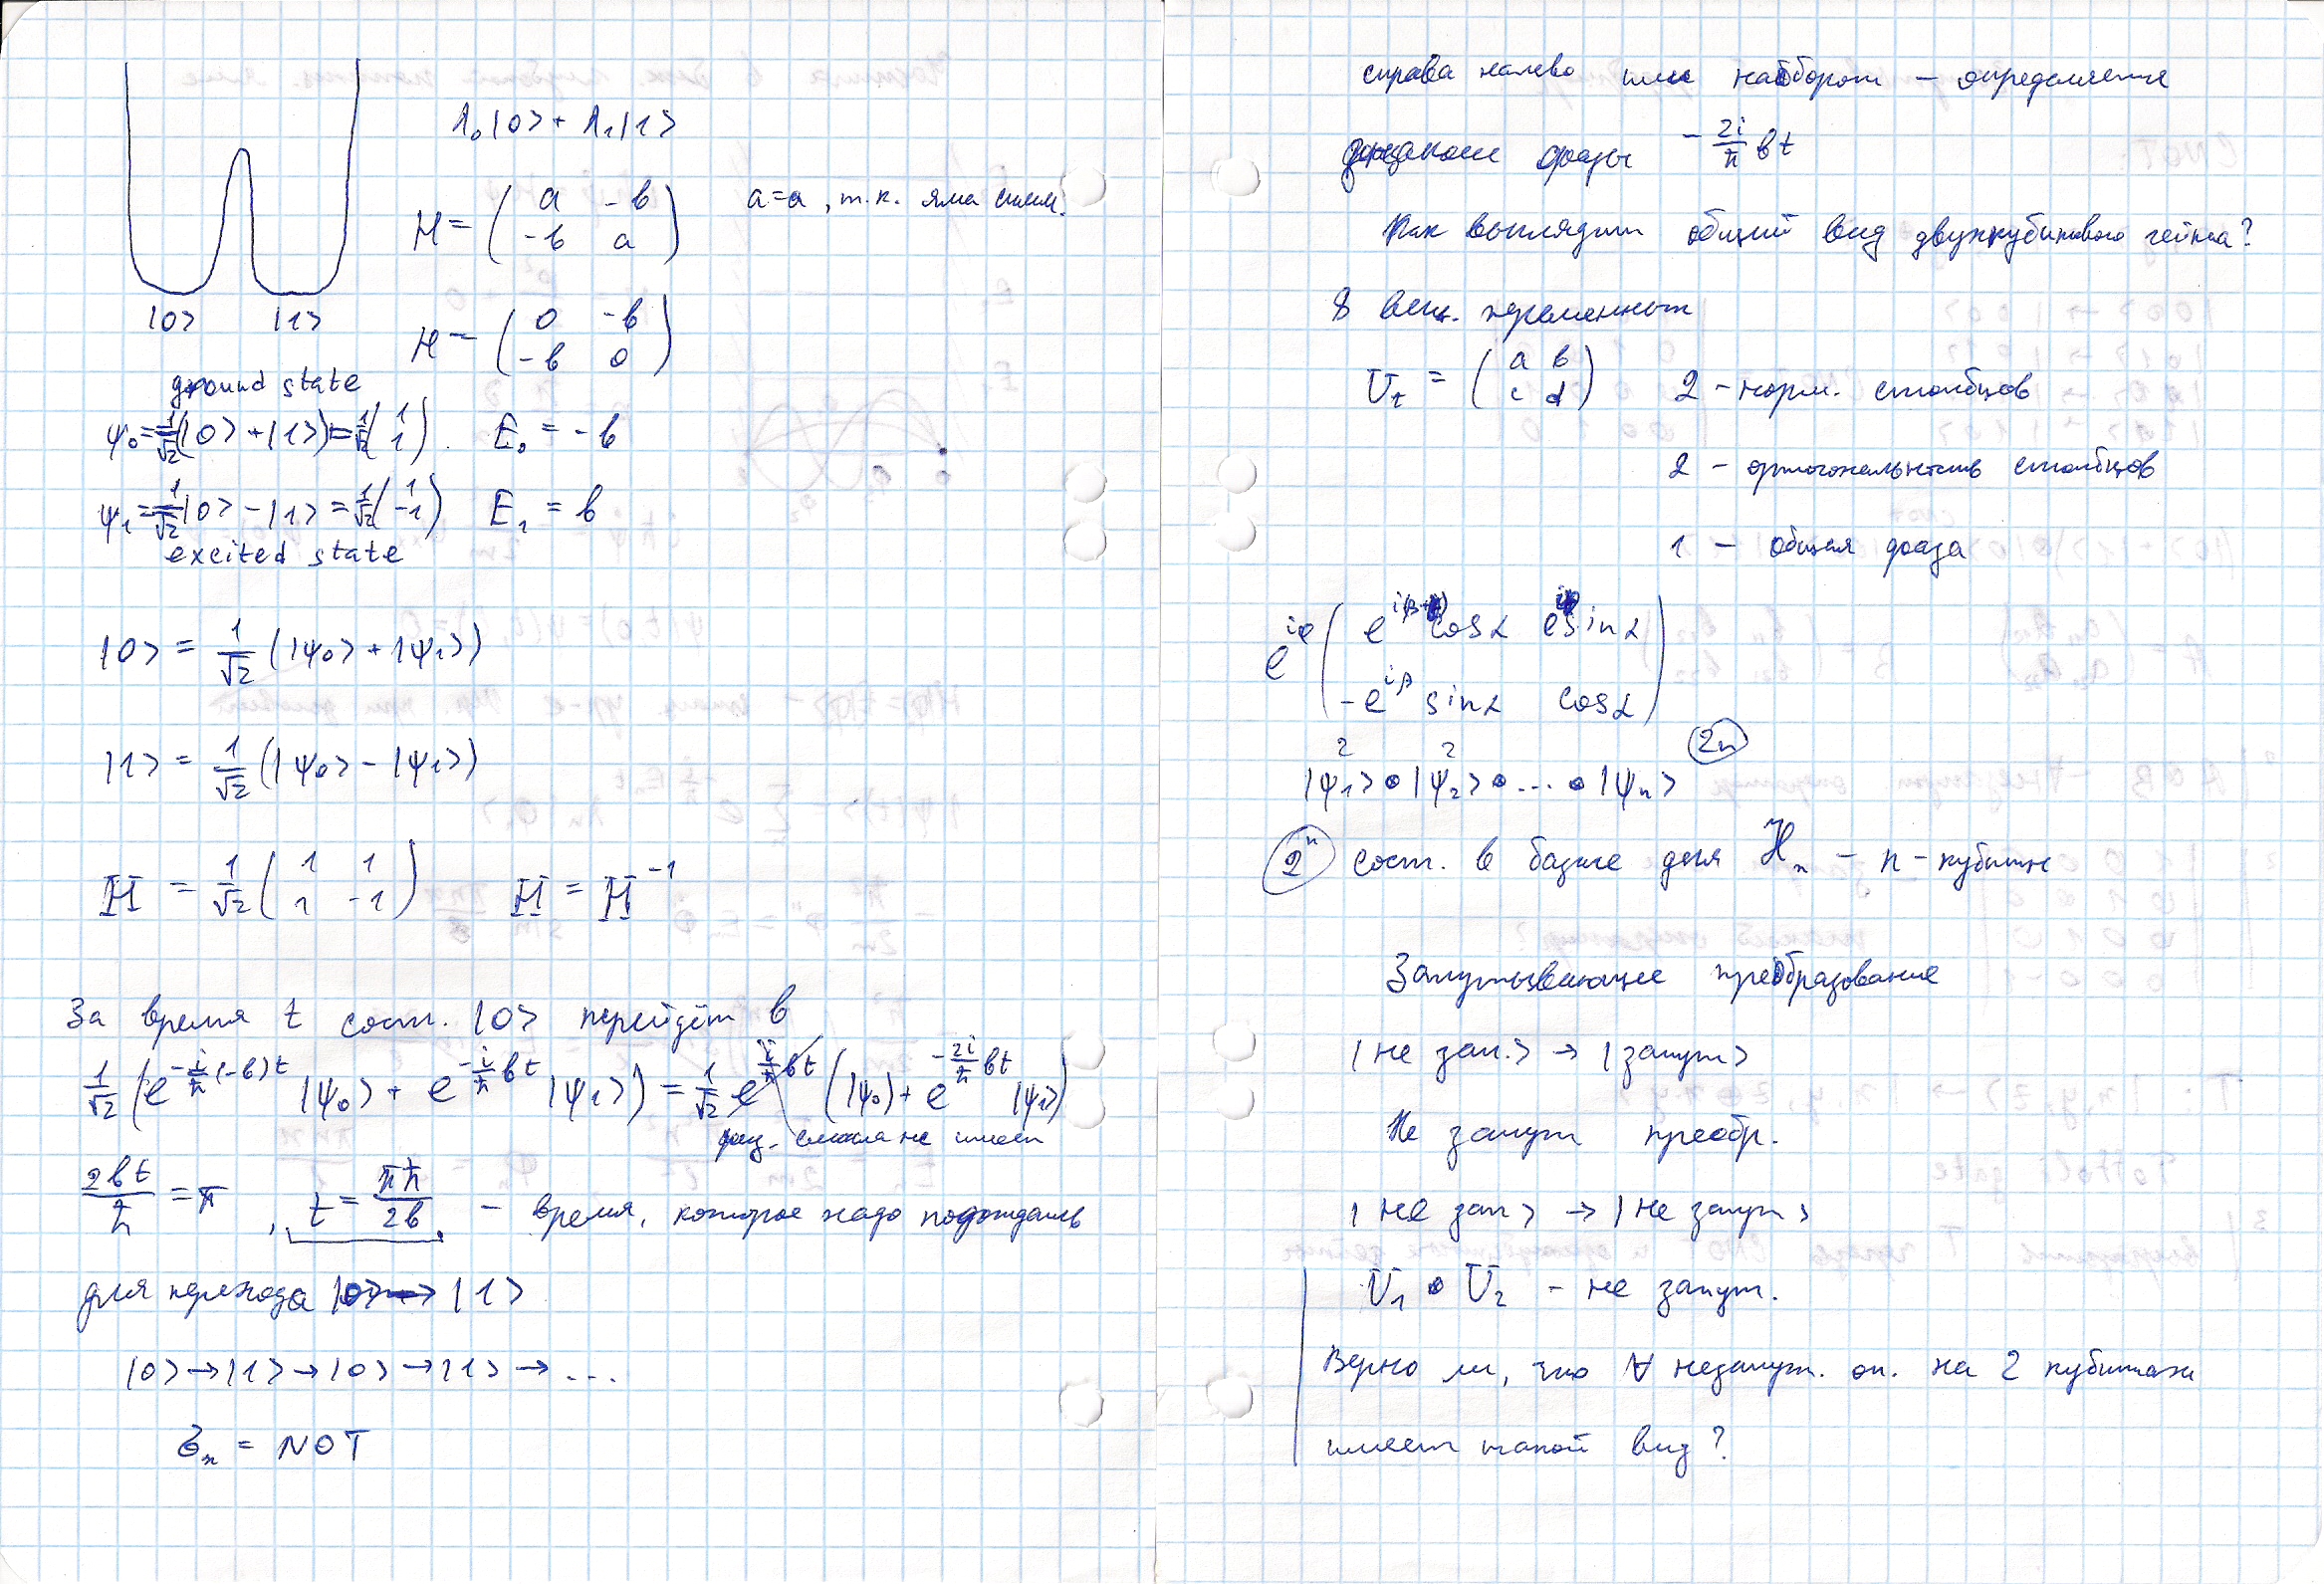 λ₀|0> + λ₁|1>
H = ( a -b
-b a )
a=a, т.к. яма симм.
|0> |1>
H = ( 0 -b
-b 0 )
ground state
ψ₀ = 1/√2 (|0> + |1>) = 1/√2 ( 1
1 ). E₀ = -b
ψ₁ = 1/√2 |0> - |1> = 1/√2 ( 1
-1 ) E₁ = b
excited state
|0> = 1/√2 (|ψ₀> + |ψ₁>)
|1> = 1/√2 (|ψ₀> - |ψ₁>)
H = 1/√2 ( 1 1
1 -1 ) H = H⁻¹
За время t сост. |0> перейдёт в
1/√2 (e^{-i/ħ (-b)t} |ψ₀> + e^{-i/ħ bt} |ψ₁>) = 1/√2 e^{i/ħ bt} (|ψ₀> + e^{-2i/ħ bt} |ψ₁>)
физ. смысла не имеет
2bt/ħ = π , t = πħ/2b - время, которое надо подождать
для перехода |0> → |1>
|0> → |1> → |0> → |1> → ...
σₓ = NOT
справа налево или наоборот - определяется
фазы - 2i/ħ bt
Как выглядит общий вид двухкубитового гейта?
8 вещ. переменных
U₁ = ( a b
c d ) 2 - норм. столбцов
2 - ортогональность столбцов
1 - общая фаза
e^{iφ} ( cosα sinα
-e^{iβ} sinα cosα )
2 2 2n
|ψ₁> ⊗ |ψ₂> ⊗ ... ⊗ |ψₙ>
2ⁿ сост. в базисе для ℋₙ - n-кубит
Запутывающее преобразование
|не зап.> → |запут>
Не запут преобр.
|не зап> → |не запут>
U₁ ⊗ U₂ - не запут.
Верно ли, что ∀ незапут. оп. на 2 кубитах
имеет такой вид?